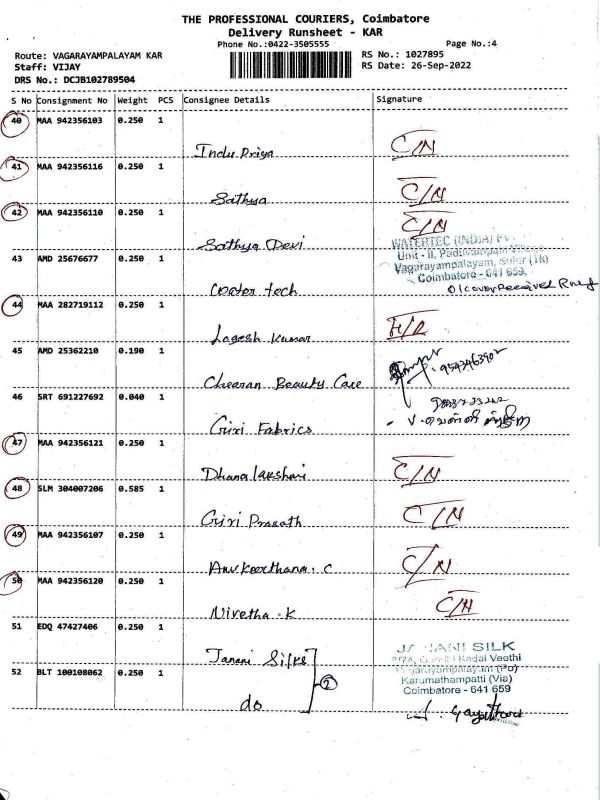 THE PROFESSIONAL COURIERS, Coimbatore
Delivery Runsheet - KAR
Phone No.:0422-3505555 Page No.:4
Route: VAGARAYAMPALAYAM KAR RS No.: 1027895
Staff: VIJAY RS Date: 26-Sep-2022
DRS No.: DCJB102789504
S No Consignment No Weight PCS Consignee Details Signature
40 MAA 942356103 0.250 1
Indu Priya C/N
41 MAA 942356116 0.250 1
Sathya C/N
42 MAA 942356110 0.250 1 C/N
Sathya Devi
WATERTEC (INDIA) Pvt
43 AMD 25676677 0.250 1 Unit - II, Paduvampalli
Vagarayampalayam, Sulur (TK)
Coimbatore - 641 659.
Water tech 01 cover Received
44 MAA 282719112 0.250 1
Logesh Kumar
45 AMD 25362210 0.190 1
Chearan Beauty Care
46 SRT 691227692 0.040 1
Giri Fabrics
47 MAA 942356121 0.250 1
Dhana lakshmi C/N
48 SLM 304007206 0.585 1
Giri Prasath C/N
49 MAA 942356107 0.250 1
C C/N
50 MAA 942356120 0.250 1
Nivetha . K C/N
51 EDQ 47427406 0.250 1
Janani Silks JANANI SILK
Kadai Veethi
52 BLT 100108062 0.250 1 Vagarayampalayam (Po)
2 Karumathampatti (Via)
Coimbatore - 641 659
do